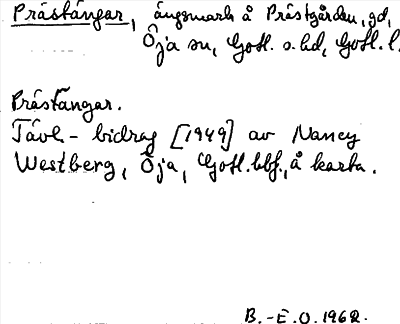 Prästängar, ängsmark å Prästgården, gd,
Öja sn, Gotl. s. hd, Gotl. l.
Prästängar.
Tävl-bidrag [1949] av Nancy
Westberg, Öja, Gotl. hbf., å karta.
B.-E.O. 1962.